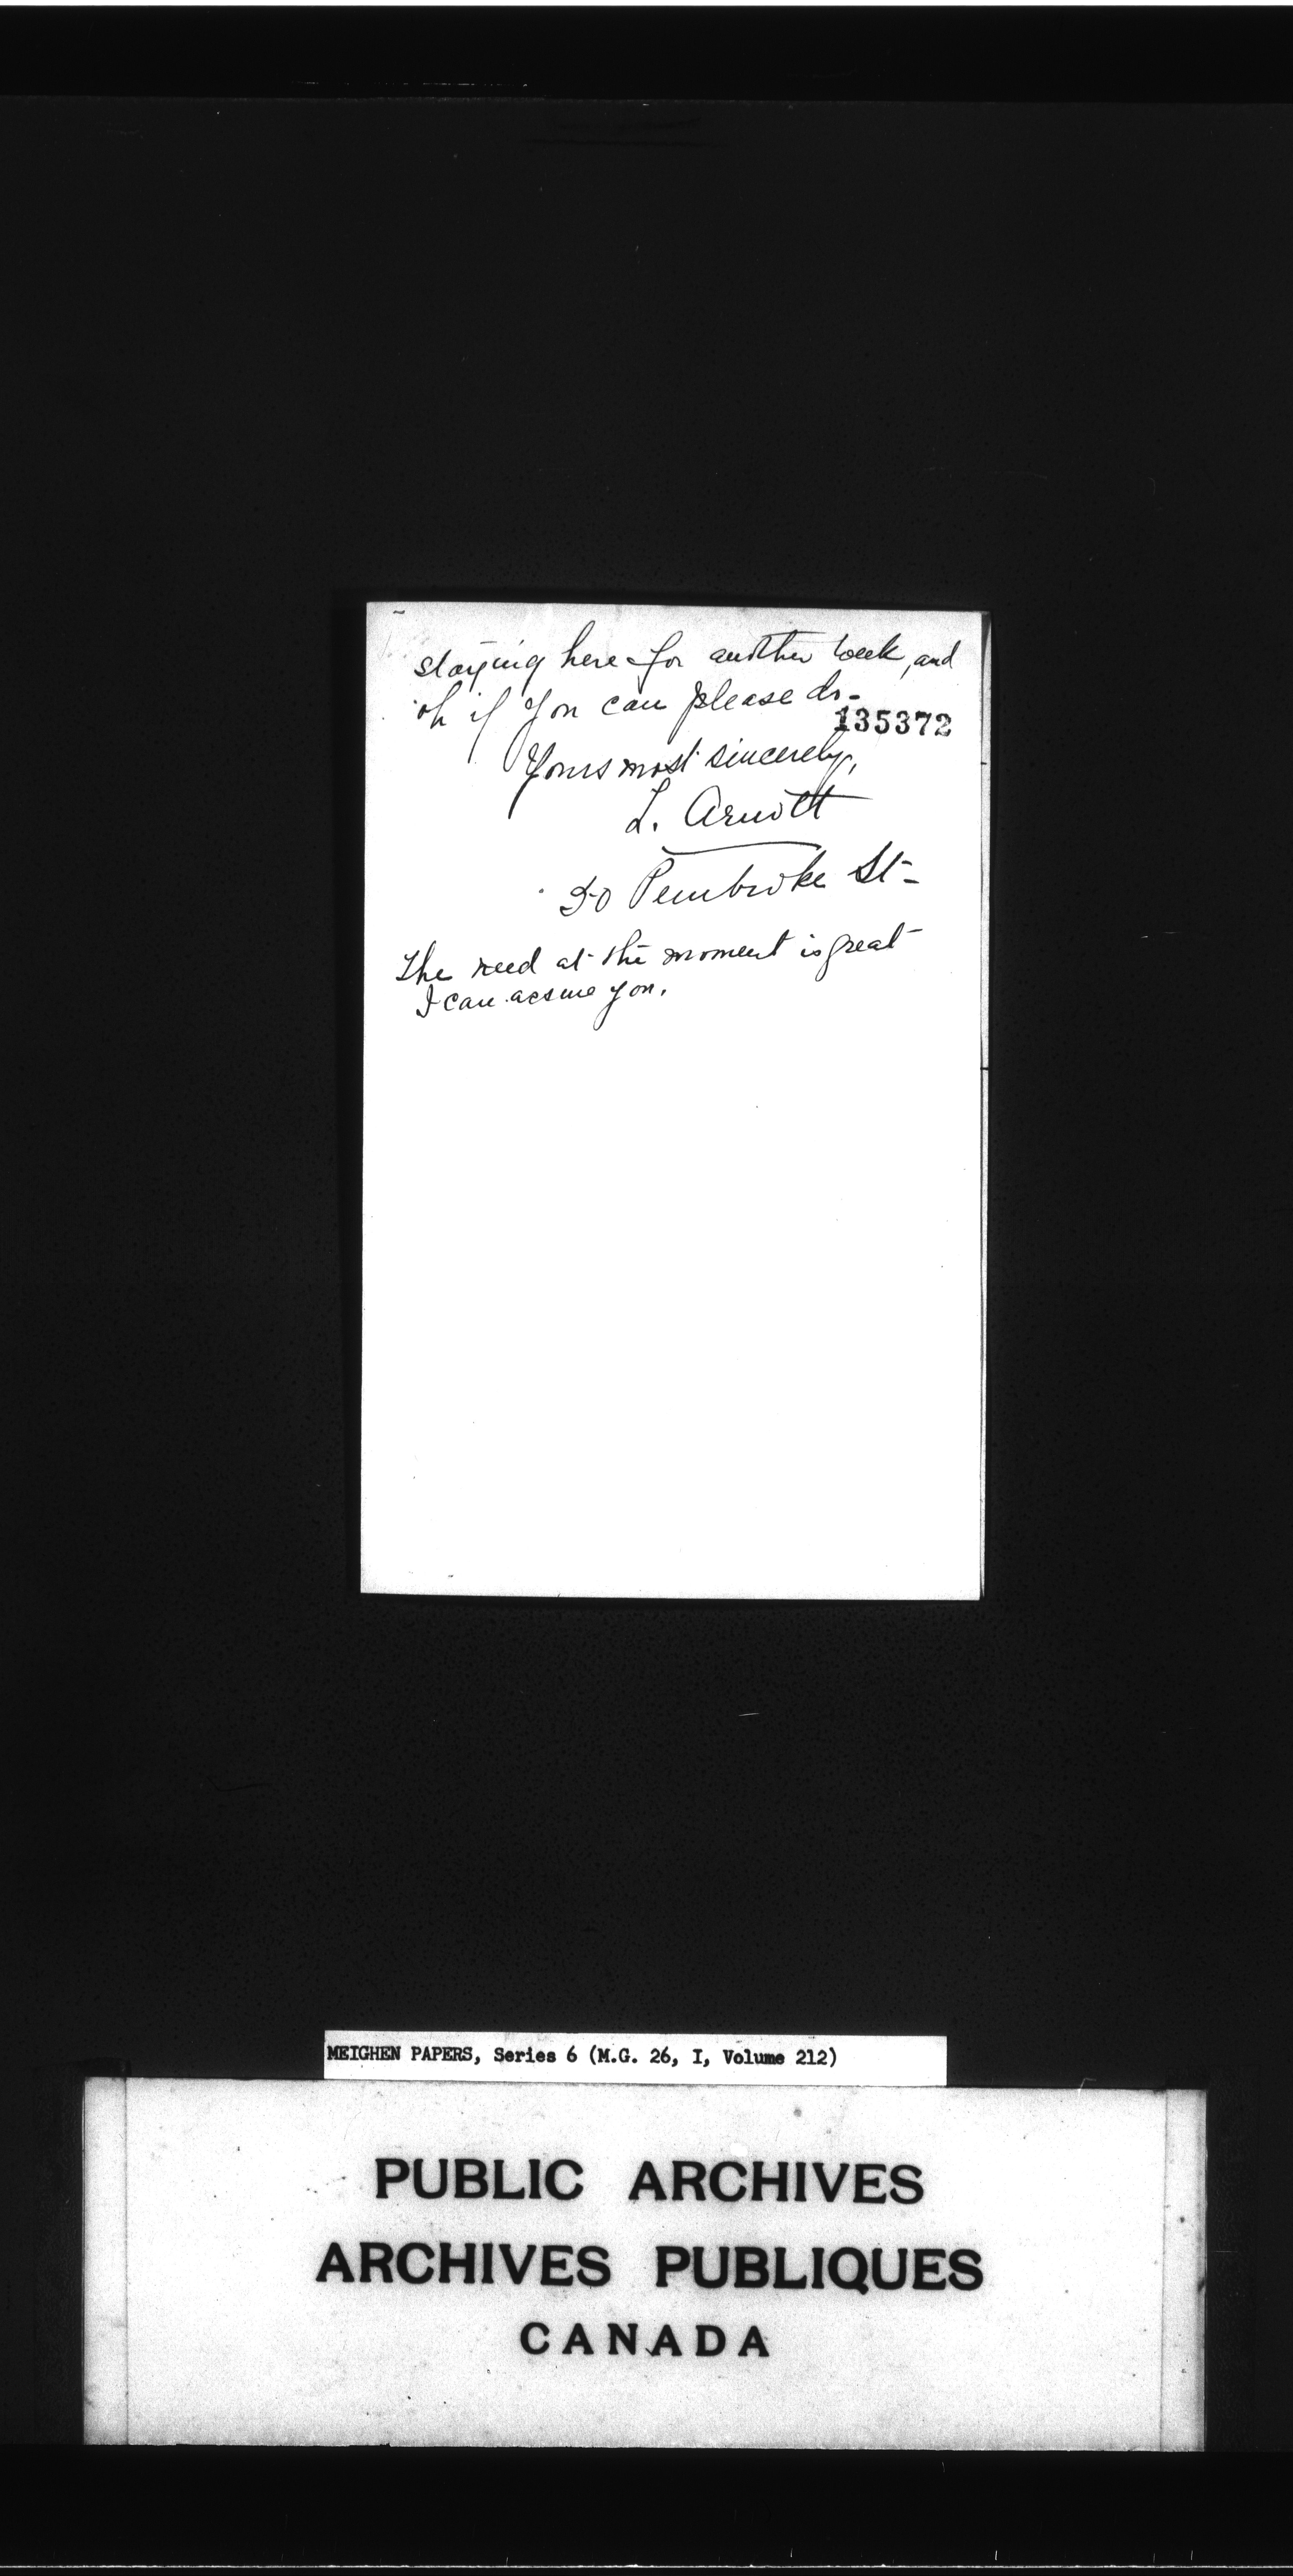 staying here for another week, and
oh if you can please do-
135372
Yours most sincerely,
L. Arnott
50 Pembroke St-
The need at the moment is great
I can assure you.
MEIGHEN PAPERS, Series 6 (M.G. 26, I, Volume 212)
PUBLIC ARCHIVES
ARCHIVES PUBLIQUES
CANADA